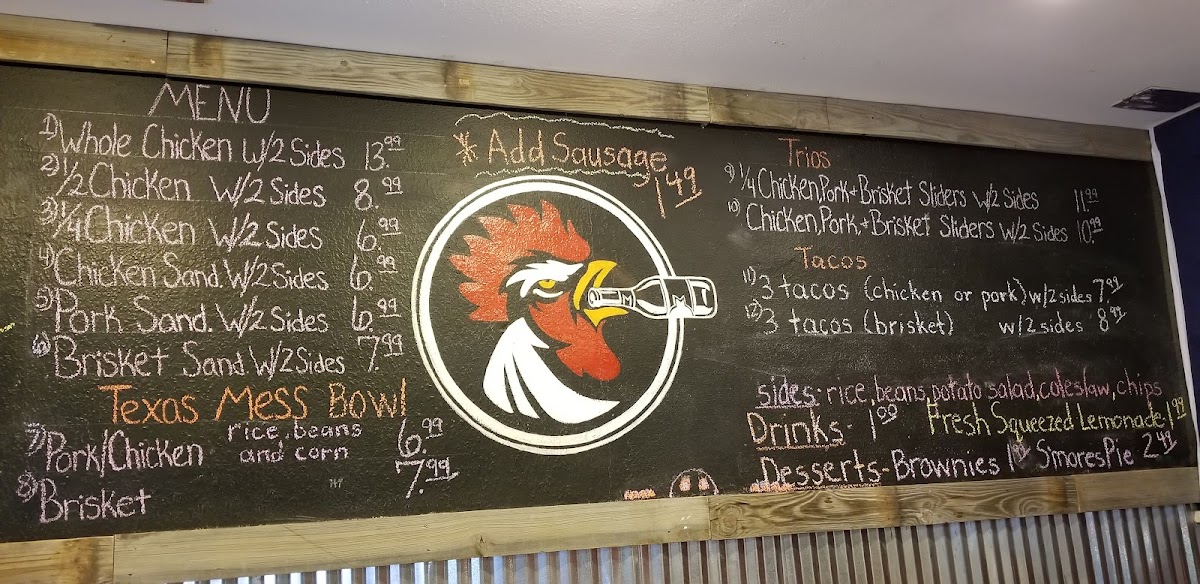 MENU
1) Whole Chicken w/2 Sides 13.99
2) 1/2 Chicken w/2 Sides 8.99
3) 1/4 Chicken w/2 Sides 6.99
4) Chicken Sand. w/2 Sides 6.99
5) Pork Sand. w/2 Sides 6.99
6) Brisket Sand w/2 Sides 7.99
Texas Mess Bowl
7) Pork/Chicken rice, beans and corn 6.99
8) Brisket 7.99
* Add Sausage 1.49
M
Trios
9) 1/4 Chicken, Pork + Brisket Sliders w/2 Sides 11.99
10) Chicken, Pork, + Brisket Sliders w/2 Sides 10.99
Tacos
11) 3 tacos (chicken or pork) w/2 sides 7.99
12) 3 tacos (brisket) w/2 sides 8.99
sides- rice, beans, potato salad, coleslaw, chips
Drinks- 1.00 Fresh Squeezed Lemonade- 1.99
Desserts- Brownies S'mores Pie 2.49